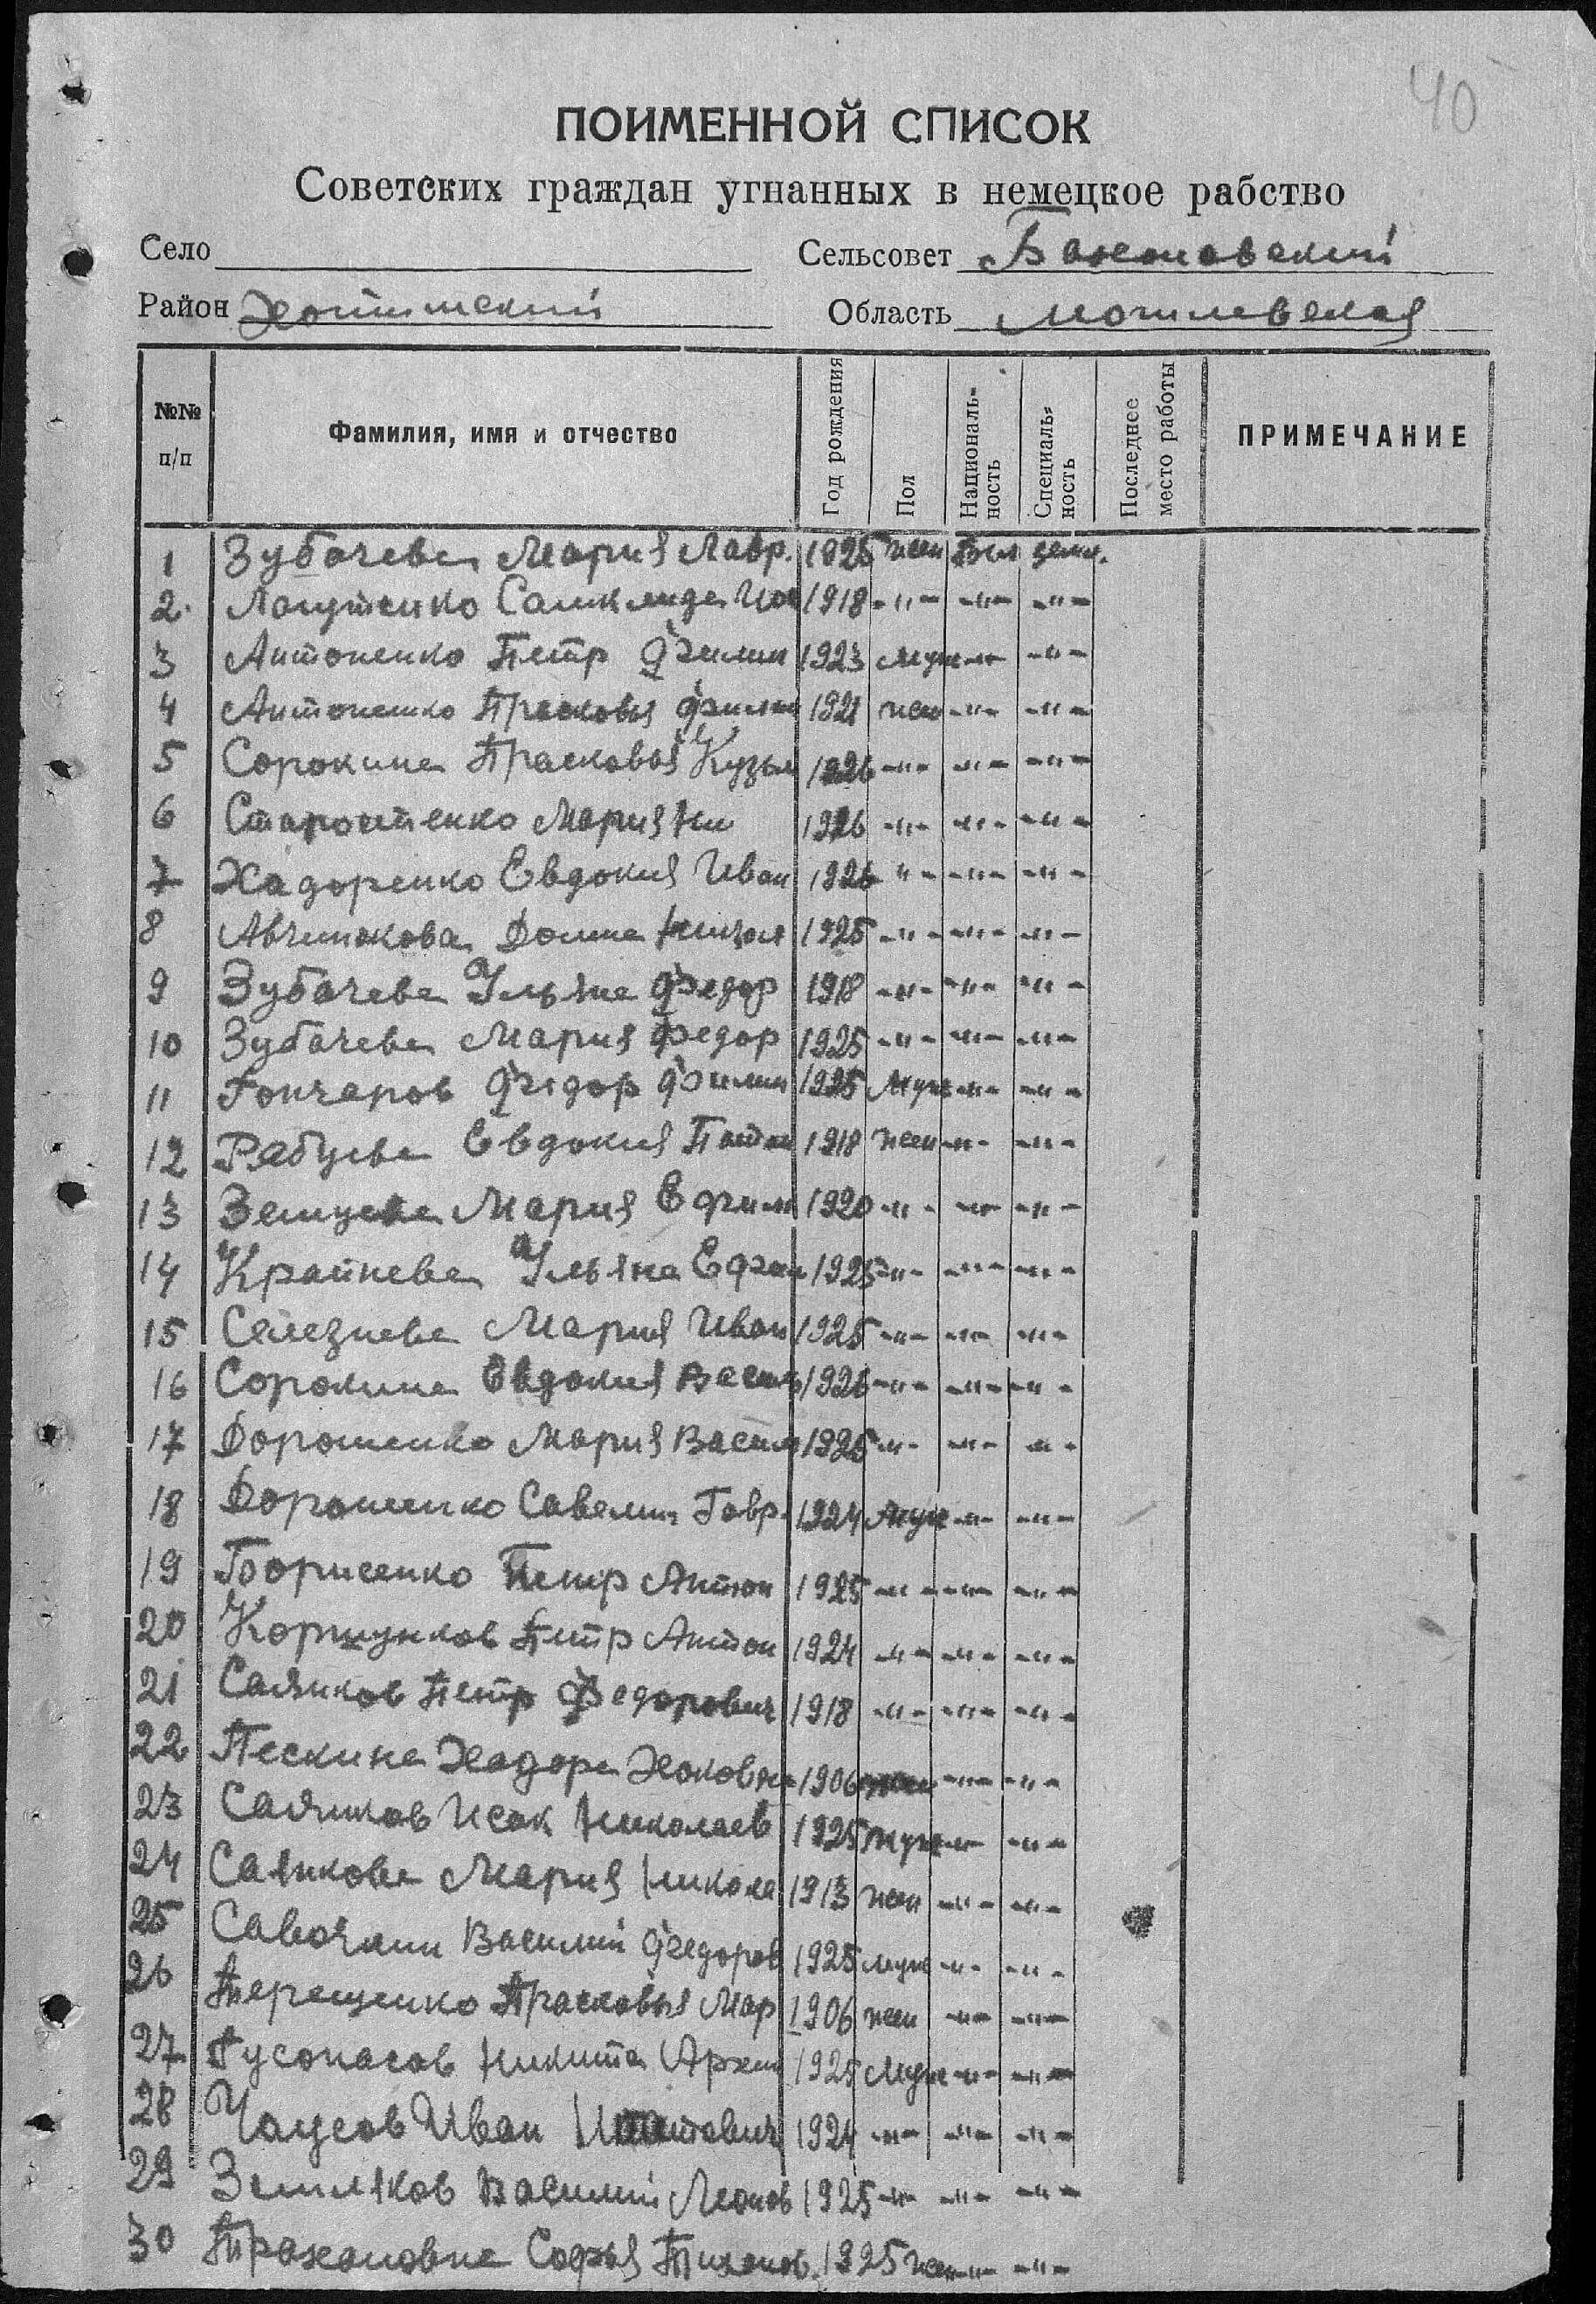 40
ПОИМЕННОЙ СПИСОК
Советских граждан угнанных в немецкое рабство
Село Сельсовет
Район Хотимский Область Могилевская
№№ п/п Фамилия, имя и отчество Год рождения Пол Националь-ность Специаль-ность Последнее место работы ПРИМЕЧАНИЕ
1 Зубачева Мария Лавр. 1925 жен Бел
2. Лапутенко 1918 -"- -"- -"-
3 Антоненко Петр Филип 1923 муж -"- -"-
4 Антоненко Прасковья Филип 1921 жен -"- -"-
5 Сорокина Прасковья Кузьм 1926 -"- -"- -"-
6 Старостенко Мария Ник 1926 -"- -"- -"-
7 Хадоренко Евдокия Иван 1926 " - -"- -"-
8 Авчинокова Домна 1925 -"- -"- -"-
9 Зубачева Ульяна Федор 1918 -"- -"- -"-
10 Зубачева Мария Федор 1925 -"- -"- -"-
11 Гончаров Федор Филип 1925 Муж -"- -"-
12 Рабцева Евдокия 1918 жен -"- -"-
13 Мария Ефим 1920 -"- -"- -"-
14 Крайнева Ульяна Ефим 1925 -"- -"- -"-
15 Селезнева Мария Иван 1925 -"- -"- -"-
16 Сорокина Евдокия Васил 1926 -"- -"- -"-
17 Дорошенко Мария Васил 1925 -"- -"- -"-
18 Дорошенко Савелий Гавр. 1924 Муж -"- -"-
19 Борисенко Петр Антон 1925 -"- -"- -"-
20 Коршунков Петр Антон 1924 -"- -"- -"-
21 Саянков Петр Федорович 1918 -"- -"- -"-
22 Пескина Хадора 1906 жен -"- -"-
23 Исак Николаев 1925 муж -"- -"-
24 Саянкова Мария Никола 1913 жен -"- -"-
25 Савочкин Василий Федоров 1925 муж -"- -"-
26 Терещенко Прасковья Мар 1906 жен -"- -"-
27 Никита Архип 1925 Муж -"- -"-
28 Чаусов Иван 1924 -"- -"- -"-
29 Земляков Василий Леонов 1925 -"- -"- -"-
30 Софья Тихонов. 1925 жен -"- -"-